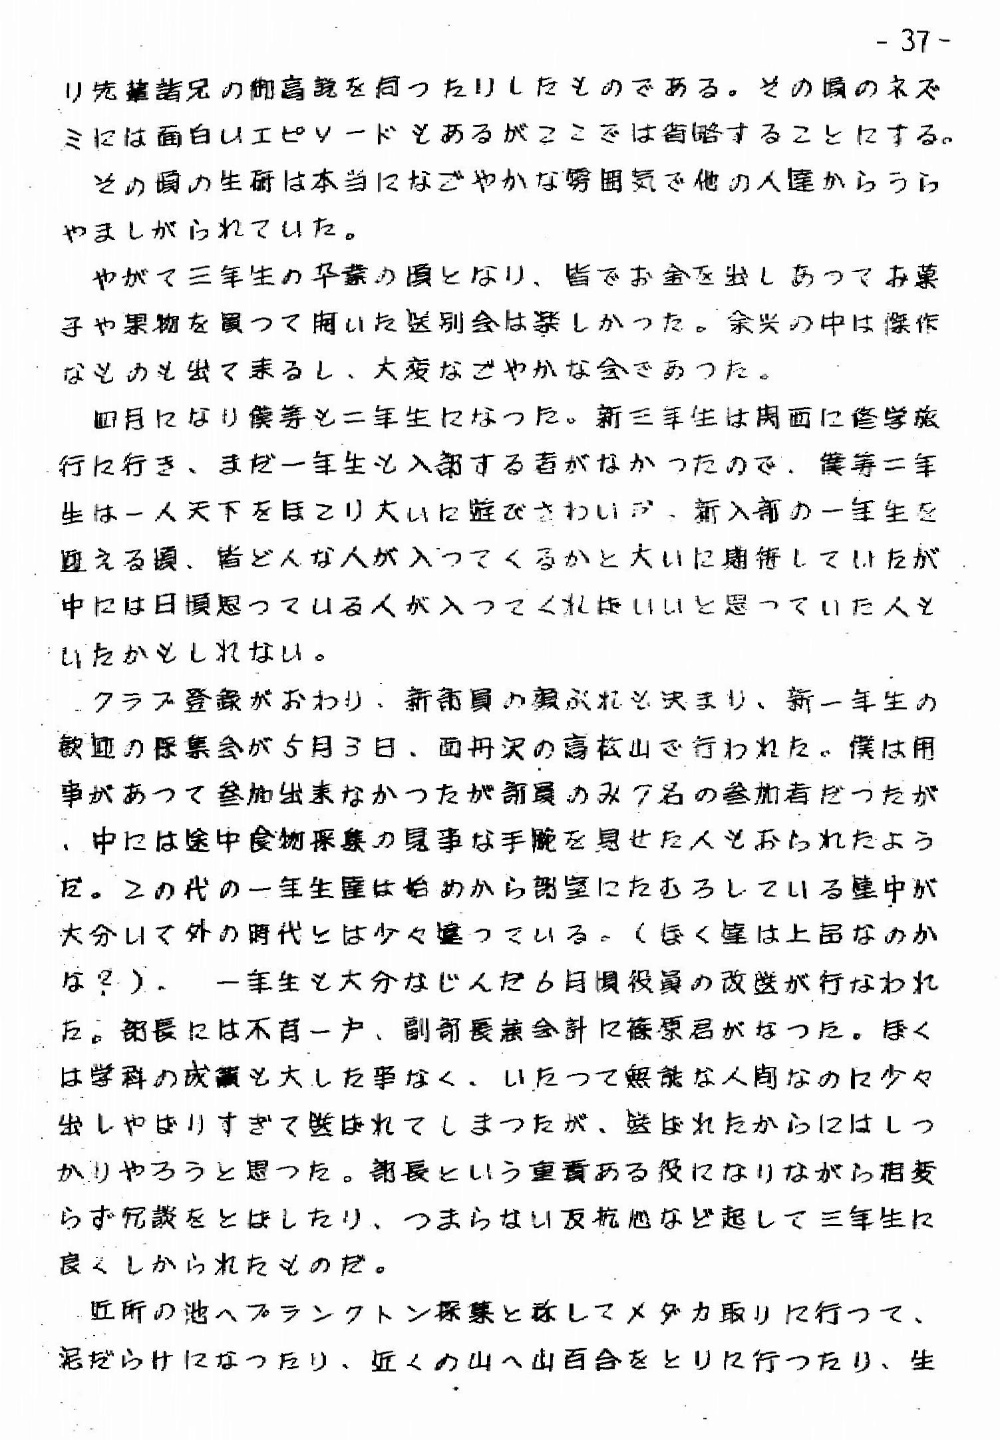 -37-
り先輩諸兄の御高説を伺つたりしたものである。その頃のネズ
ミには面白いエピソードもあるがここでは省略することにする。
その頃の生研は本当になごやかな雰囲気で他の人達からうら
やましがられていた。
やがて三年生の卒業の頃となり、皆でお金を出しあってお菓
子や果物を買って開いた送別会は楽しかった。余興の中は傑作
なものも出て来るし、大変なごやかな会であつた。
四月になり僕等も二年生になった。新三年生は関西に修学旅
行に行き、まだ一年生も入部する者がなかつたので、僕等二年
生は一人天下をほこり大いに遊びさわいだ、新入部の一年生を
迎える頃、皆どんな人が入つてくるかと大いに期待していたが
中には日頃思っている人が入つてくればいいと思っていた人も
いたかもしれない。
クラブ登録がおわり、新部員の顔ぶれも決まり、新一年生の
歓迎の採集会が5月3日、西丹沢の高松山で行われた。僕は用
事があつて参加出来なかつたが部員のみ7名の参加者だつたが
、中には途中食物採集の見事な手腕を見せた人もおられたよう
だ。この代の一年生達は始めから部室にたむろしている連中が
大分いて外の時代とは少々違つている。(ぼく達は上品なのか
な?)。 一年生も大分なじんだ6月頃役員の改選が行なわれ
た。部長には不肖一戸、副部長兼会計に篠原君がなつた。ぼく
は学科の成績も大した事なく、いたつて無能な人間なのに少々
出しやばりすぎて選ばれてしまつたが、選ばれたからにはしっ
かりやろうと思つた。部長という重責ある役になりながら相変
らず冗談をとばしたり、つまらない反抗心など起して三年生に
良くしかられたものだ。
近所の池へプランクトン採集と称してメダカ取りに行つて、
泥だらけになったり、近くの山へ山百合をとりに行つたり、生